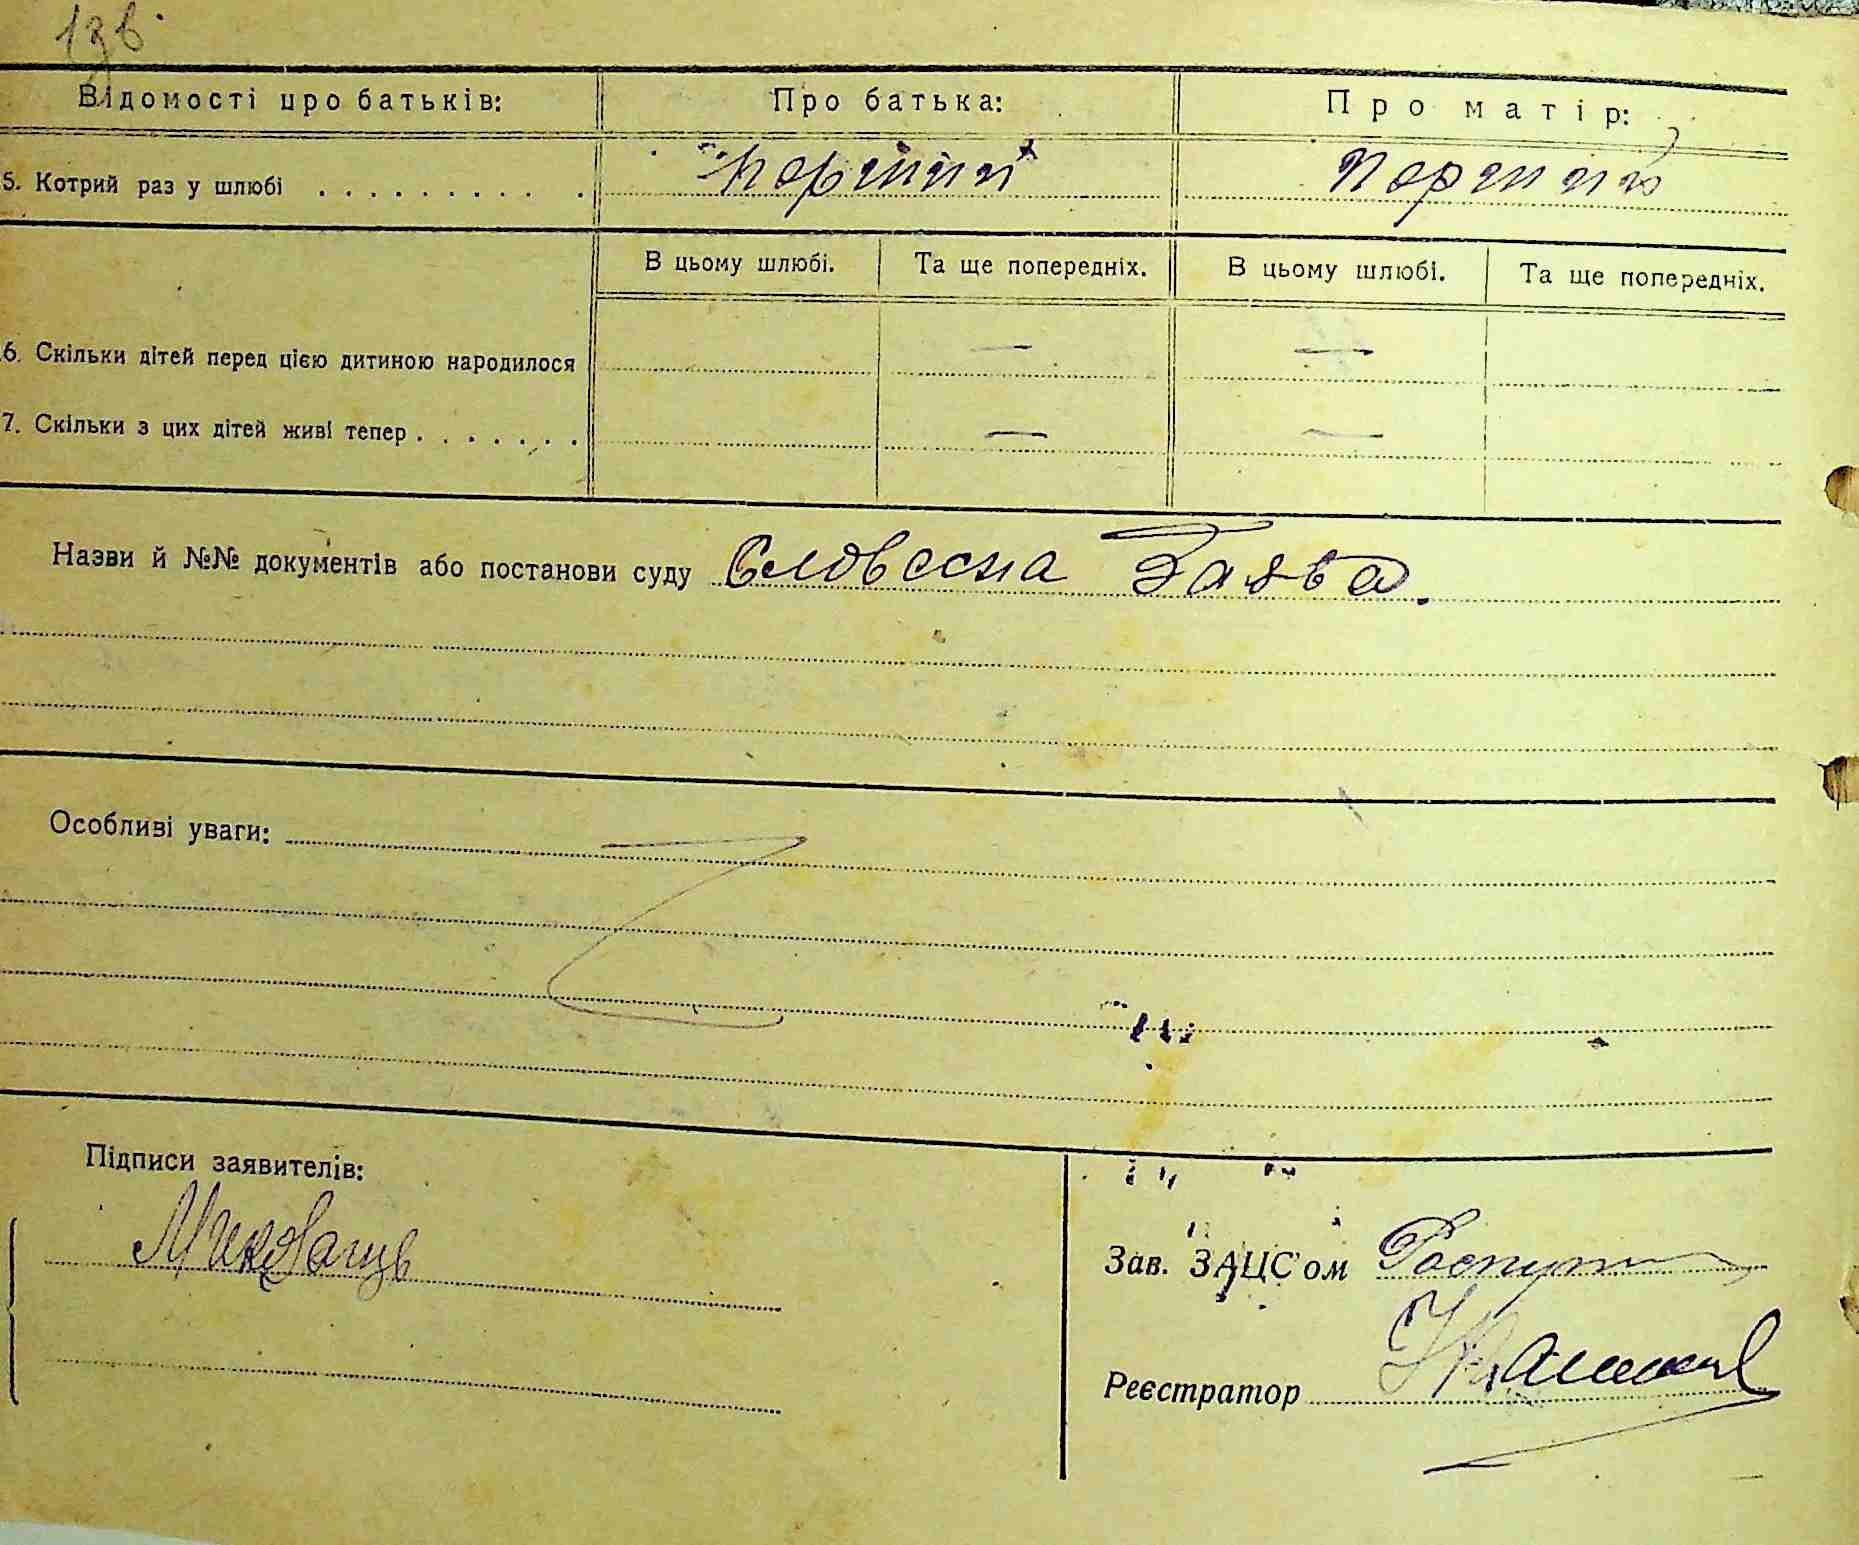 Відомості про батьків: Про батька: Про матір:
5. Котрий раз у шлюбі . . . . . . . . . . перший перший
В цьому шлюбі. Та ще попередніх. В цьому шлюбі. Та ще попередніх.
6. Скільки дітей перед цією дитиною народилося — —
7. Скільки з цих дітей живі тепер . . . . . . . — —
Назви й №№ документів або постанови суду Словесна Заява.
Особливі уваги:
Підписи заявителів:
Зав. ЗАЦС'ом
Реєстратор